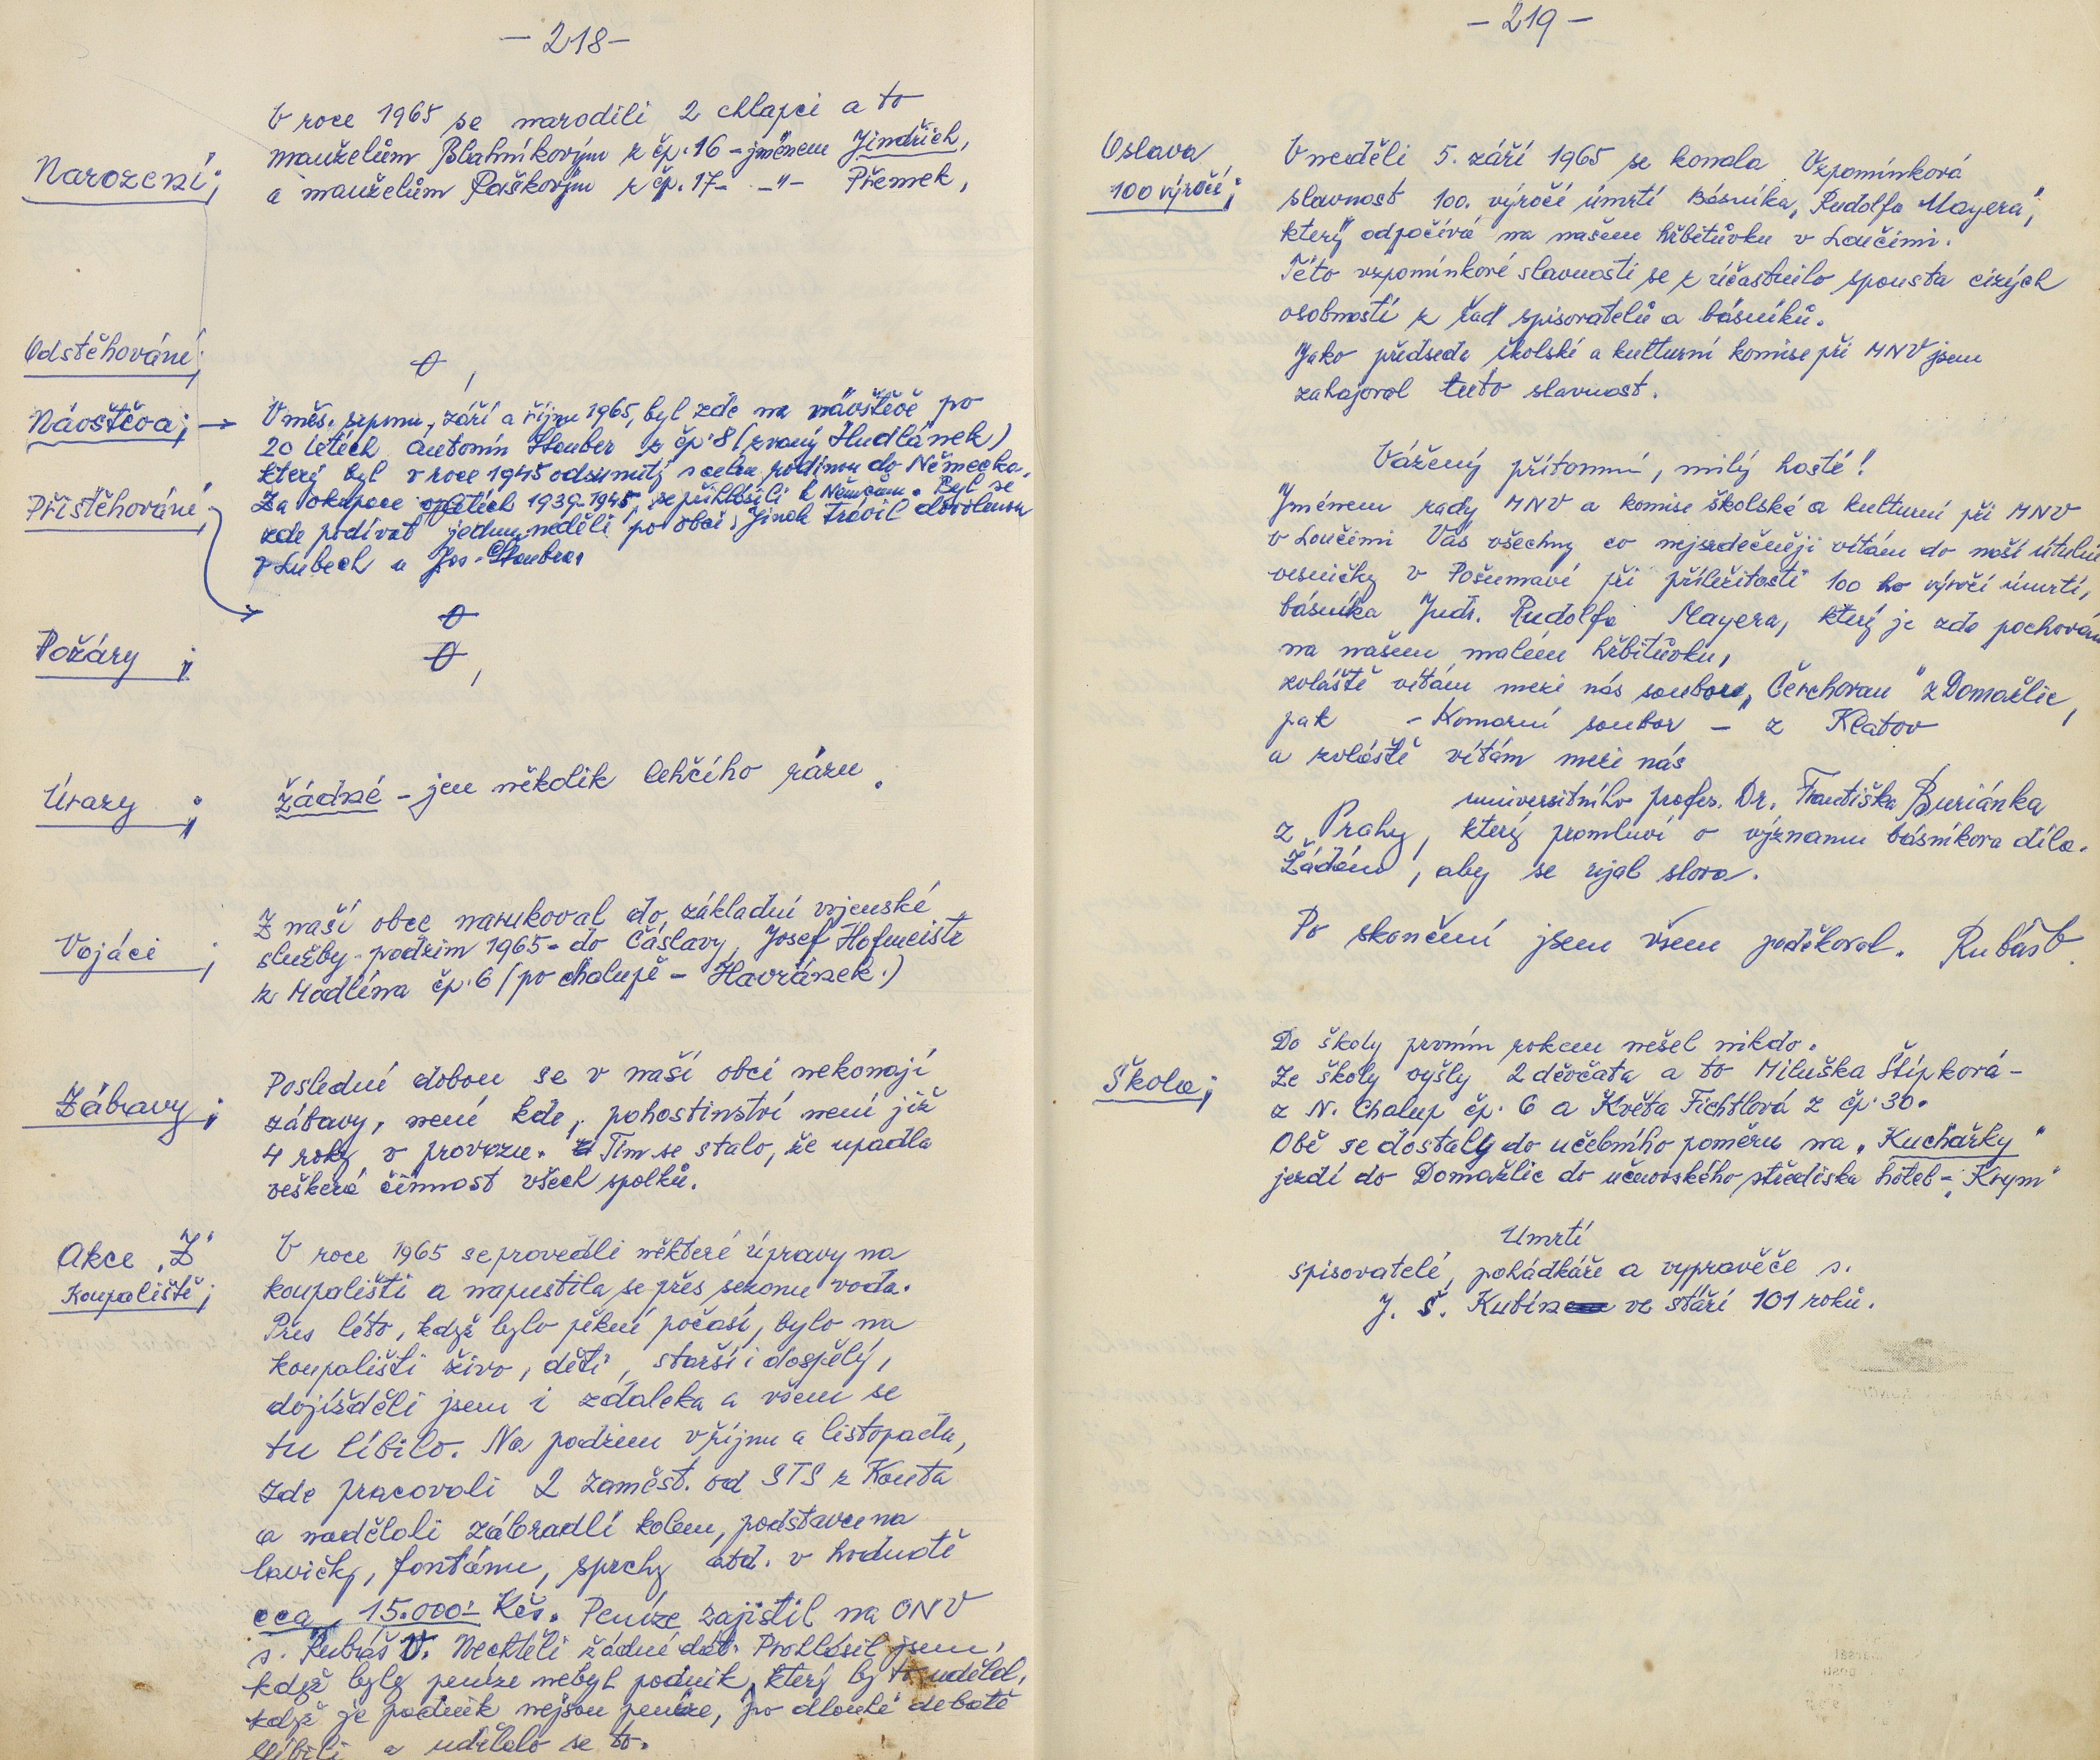 - 218 -
Narození;
V roce 1965 se narodili 2 chlapci a to
manželům Blahníkovým z čp. 16 - jménem Jindřich,
a manželům Paškovým z čp. 17 - -"- Přemek,
Odstěhování;
0,
Návštěva;
V měs. srpnu, září a říjnu 1965, byl zde na návštěvě po
20 letech Antonín Stauber z čp. 8 (zvaný Hudlánek)
který byl v roce 1945 odsunutý s celou rodinou do Německa.
Za okupace v letech 1939-1945, se přihlásili k Němcům. Byl se
zde podívat jednu neděli po obci, jinak trávil dovolenou
v Lubech u Jos. Staubra,
Přistěhování;
0
Požáry;
0,
Úrazy;
žádné - jen několik lehčího rázu.
Vojáci;
Z naší obce narukoval do základní vojenské
služby - podzim 1965 - do Čáslavy, Josef Hofmeistr
z Modlína čp. 6 (po chalupě - Havránek.)
Zábavy;
Poslední dobou se v naší obci nekonají
zábavy, není kde, pohostinství není již
4 roky v provozu. Tím se stalo, že upadla
veškerá činnost všech spolků.
Akce „Z"
Koupaliště;
V roce 1965 se provedli některé úpravy na
koupališti a napustila se přes sezonu voda.
Přes léto, když bylo pěkné počasí, bylo na
koupališti živo, děti, starší i dospělý,
dojížděli jsem i zdaleka a všem se
tu líbilo. Na podzim v říjnu a listopadu,
zde pracovali 2 zaměst. od STS z Kouta
a nadělali zábradlí kolem, podstavce na
lavičky, fontánu, sprchy atd. v hodnotě
cca, 15.000:- Kčs. Peníze zajistil na ONV
s. Rubáš V. Nechtěli žádné dát. Prohlásil jsem,
když byly peníze nebyl podnik, který by to udělal,
když je podnik nejsou peníze, po dlouhé debatě
slíbili a udělalo se to.
- 219 -
Oslava
100 výročí;
V neděli 5. září 1965 se konala Vzpomínková
slavnost 100. výročí úmrtí Básníka, „Rudolfa Mayera",
který odpočívá na našem hřbitůvku v Loučimi.
Této vzpomínkové slavnosti se zúčastnilo spousta cizých
osobností z řad spisovatelů a básníků.
Jako předseda školské a kulturní komise při MNV jsem
zahajoval tuto slavnost.
Vážený přítomní, milý hosté!
Jménem rady MNV a komise školské a kulturní při MNV
v Loučimi Vás všechny co nejsrdečněji vítám do naší útulné
vesničky v Pošumaví při příležitosti 100 ho výročí úmrtí,
básníka Judr. Rudolfa Mayera, který je zde pochován
na našem malém hřbitůvku,
zvláště vítám mezi nás soubor „Čerchovan" z Domažlic,
pak - Komorní soubor - z Klatov
a zvláště vítám mezi nás
universitního profes. Dr. Františka Buriánka
z Prahy, který promluví o významu básníkova díla.
Žádám, aby se ujal slova.
Po skončení jsem všem poděkoval. Rubáš V.
Škola;
Do školy prvním rokem nešel nikdo.
Ze školy vyšly 2 děvčata a to Miluška Štípková -
z N. Chalup čp. 6 a Květa Fichtlová z čp. 30.
Obě se dostaly do učebního poměru na „Kuchařky"
jezdí do Domažlic do učnovského střediska hotel - „Krym"
Umrtí
spisovatelé, pohádkáře a vypravěče s.
J. Š. Kubín ve stáří 101 roků.